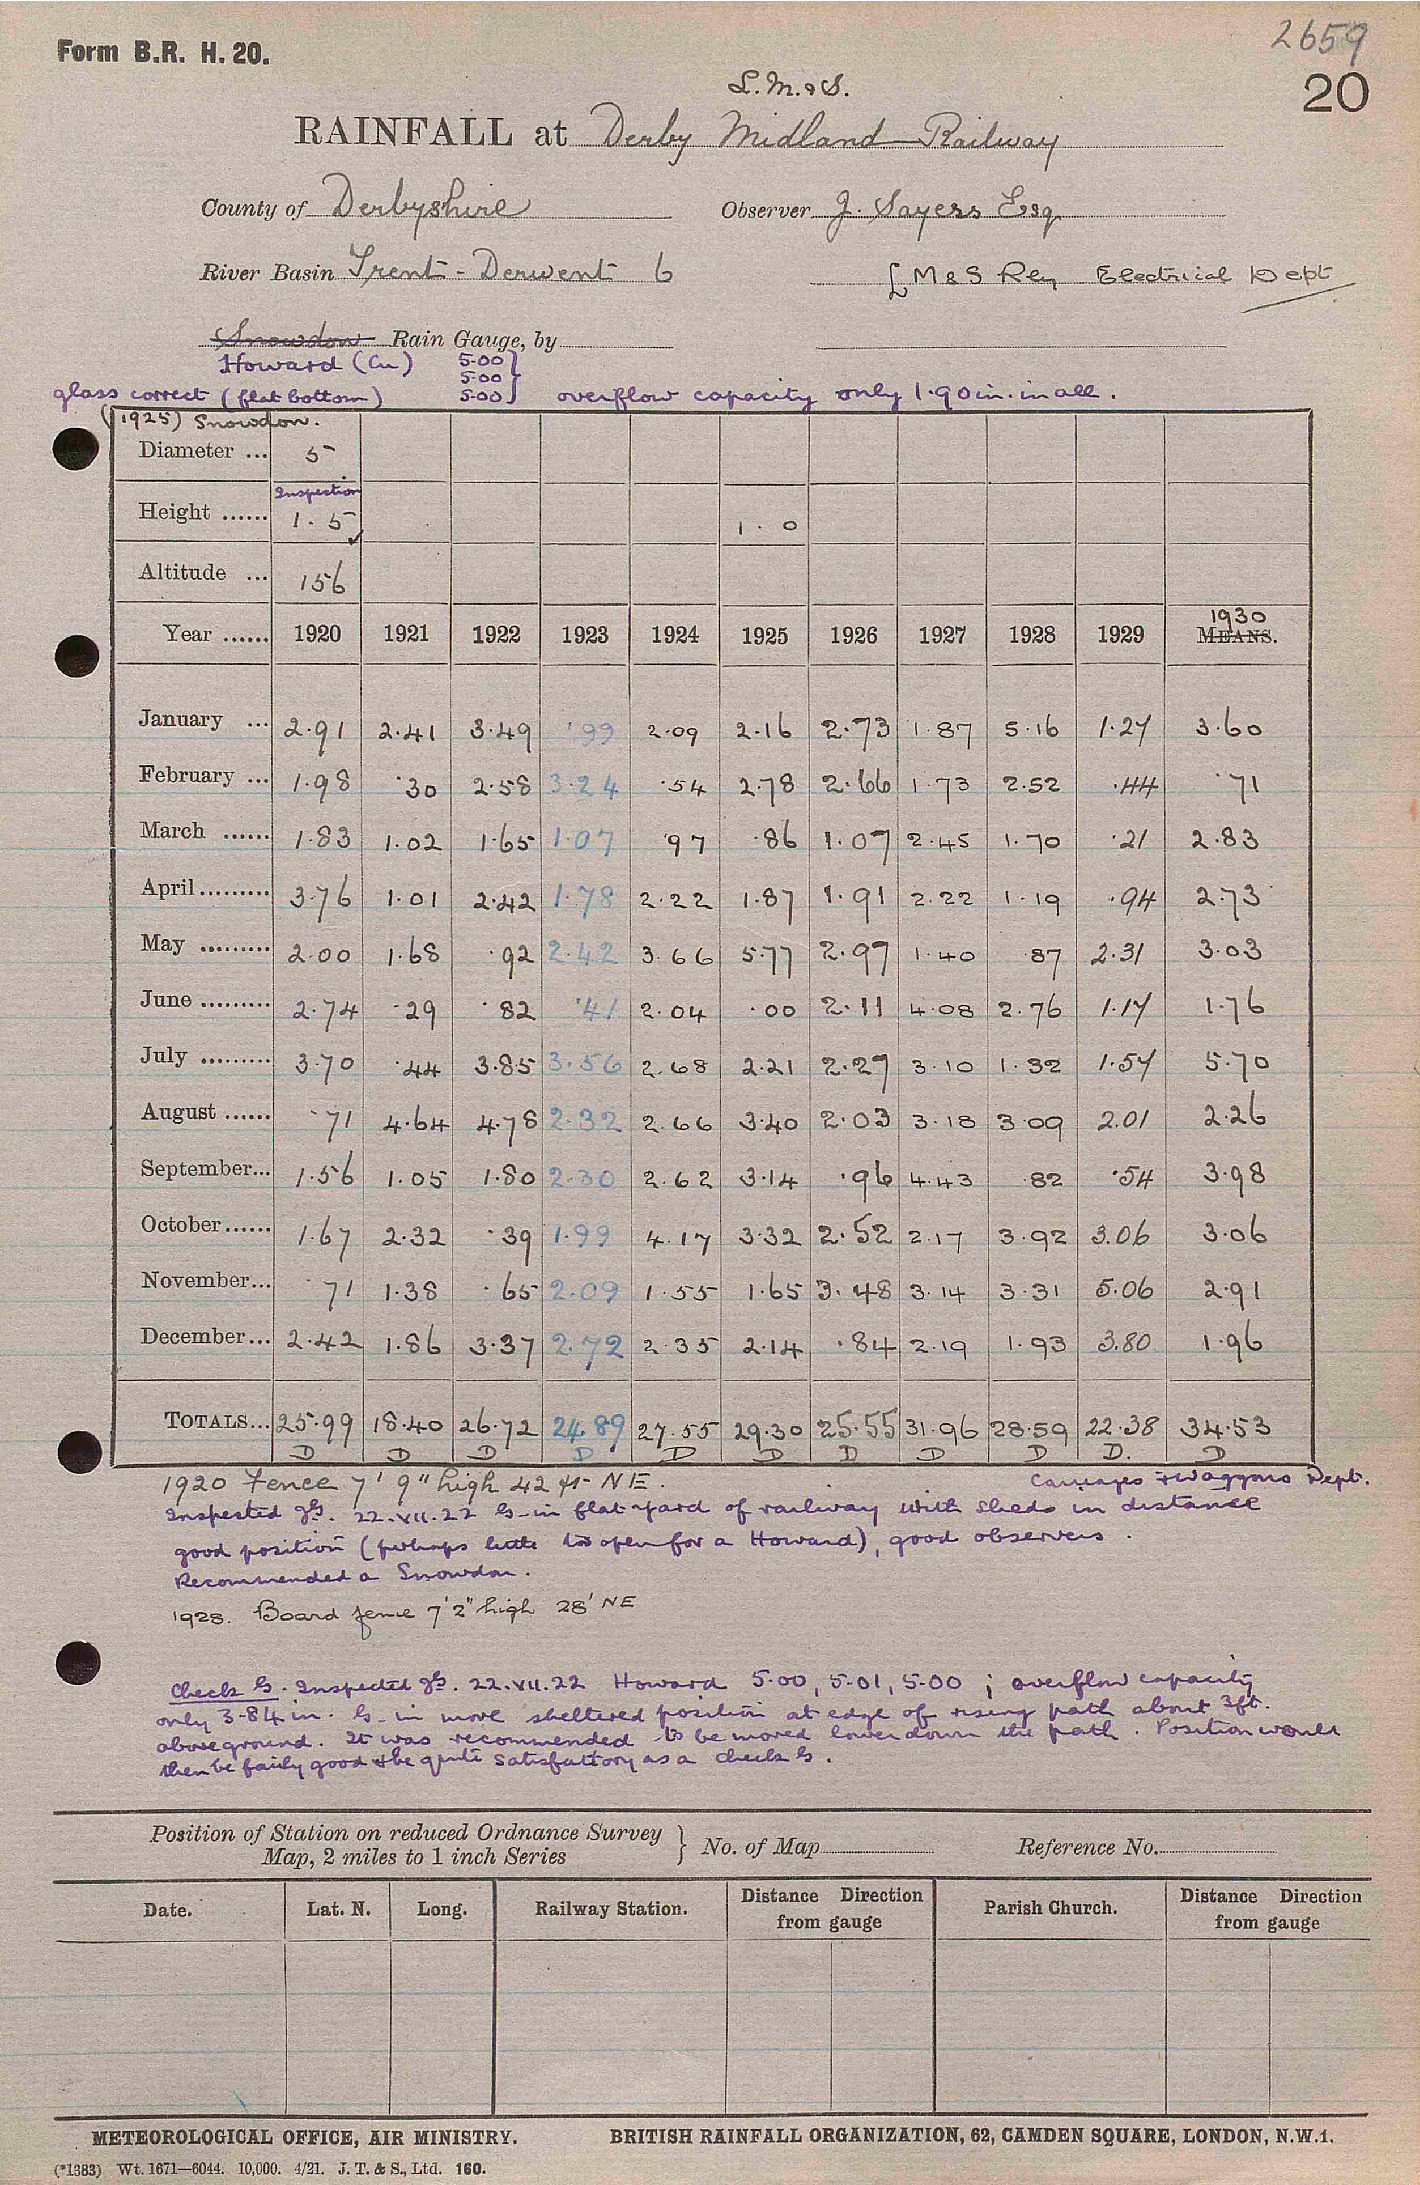 2659
Form B.R. H. 20.
20
L. M. & S.
RAINFALL at Derby Midland Railway
County of Derbyshire Observer J. Sayers Esq.
River Basin Trent - Derwent 6 L M & S Rly Electrical Dept
Snowdon Rain Gauge, by
Howard (Cu) 5.00
5.00
glass correct (flat bottom) 5.00 } overflow capacity only 1.90 in. in all.
(1925) Snowdon.
Diameter ... 5
Inspection
Height ...... 1.5 1.0
Altitude ... 156
1930
Year ...... 1920 1921 1922 1923 1924 1925 1926 1927 1928 1929 MEANS.
January ... 2.91 2.41 3.49 .99 2.09 2.16 2.73 1.87 5.16 1.27 3.60
February ... 1.98 .30 2.58 3.24 .54 2.78 2.66 1.73 2.52 .44 .71
March ...... 1.83 1.02 1.65 1.07 .97 .86 1.07 2.45 1.70 .21 2.83
April ......... 3.76 1.01 2.42 1.78 2.22 1.87 1.91 2.22 1.19 .94 2.73
May ......... 2.00 1.68 .92 2.42 3.66 5.77 2.97 1.40 .87 2.31 3.03
June ......... 2.74 .29 .82 .41 2.04 .00 2.11 4.08 2.76 1.17 1.76
July ......... 3.70 .44 3.85 3.56 2.68 2.21 2.27 3.10 1.32 1.57 5.70
August ...... .71 4.64 4.78 2.32 2.66 3.40 2.03 3.18 3.09 2.01 2.26
September... 1.56 1.05 1.80 2.30 2.62 3.14 .96 4.43 .82 .54 3.98
October ...... 1.67 2.32 .39 1.99 4.17 3.32 2.52 2.17 3.92 3.06 3.06
November... .71 1.38 .65 2.09 1.55 1.65 3.48 3.14 3.31 5.06 2.91
December... 2.42 1.86 3.37 2.72 2.35 2.14 .84 2.19 1.93 3.80 1.96
TOTALS... 25.99 18.40 26.72 24.89 27.55 29.30 25.55 31.96 28.59 22.38 34.53
D D D D D D D D D D. D
1920 Fence 7' 9" high 42 ft NE. Carriages & Waggons Dept.
Inspected 22.VII.22 G. in flat yard of railway with sheds in distance
good position (perhaps little too open for a Howard), good observers.
Recommended a Snowdon.
1928. Board fence 7' 2" high 28' NE
Check G. Inspected 22.VII.22 Howard 5.00, 5.01, 5.00 ; overflow capacity
only 3.84 in. G. in more sheltered position at edge of rising path about 3ft.
above ground. It was recommended to be moved lower down the path. Position would
then be fairly good & be quite satisfactory as a check G.
Position of Station on reduced Ordnance Survey
Map, 2 miles to 1 inch Series } No. of Map Reference No.
Date. Lat. N. Long. Railway Station. Distance Direction from gauge Parish Church. Distance Direction from gauge
METEOROLOGICAL OFFICE, AIR MINISTRY. BRITISH RAINFALL ORGANIZATION, 62, CAMDEN SQUARE, LONDON, N.W.1.
(*1383) Wt. 1671—6044. 10,000. 4/21. J. T. & S., Ltd. 160.